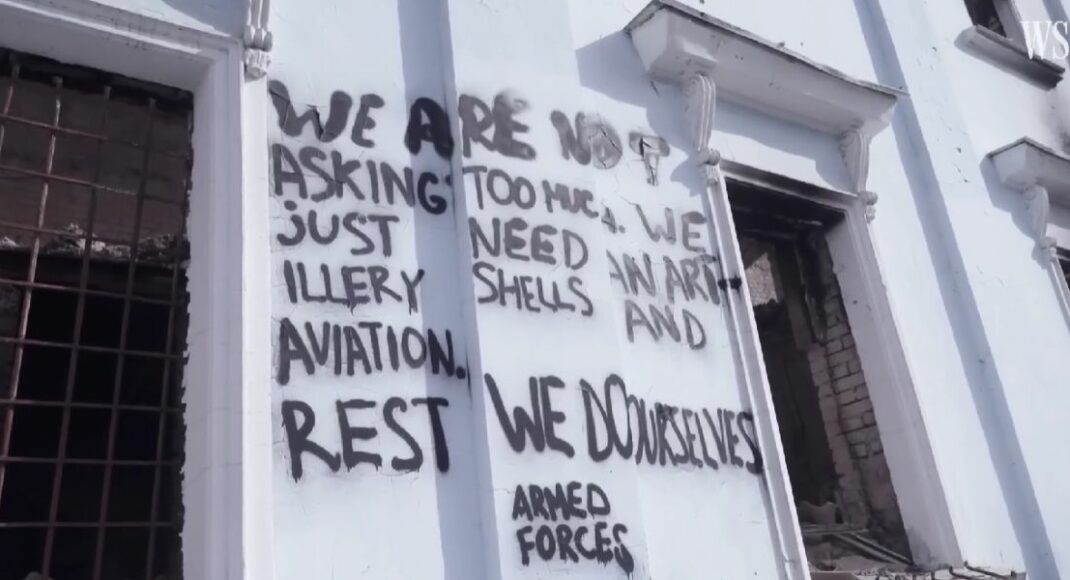 WS
WE ARE NOT
ASKING TOO MUCH. WE
JUST NEED AN ART
ILLERY SHELLS AND
AVIATION.
REST WE DO OURSELVES
ARMED
FORCES